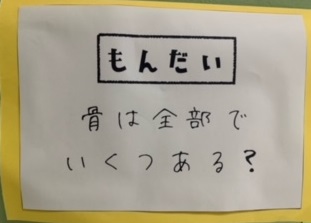 もんだい
骨は全部で
いくつある?